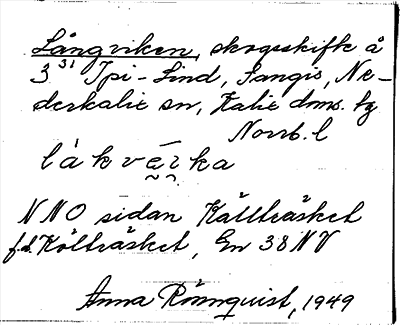 Långviken, skogsskifte å
3 31 Ipi-Lind, Sangis, Ne-
derkalix sn, Kalix dms. tg
Norrb. l
låkvẹ́ịka
NNO sidan Kältträsket
f.d. Költräsket, En 38 NV
Anna Rönnquist, 1949